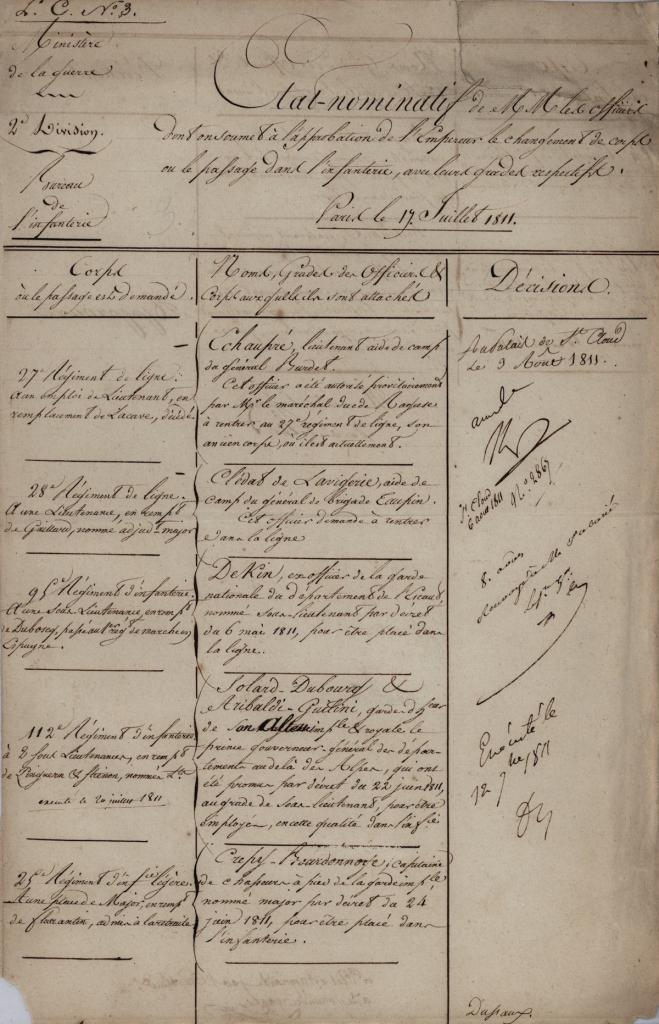 L. C. N.° 3.
Ministère
de la Guerre
2e Division.
Bureau
de
l'infanterie
Etat-nominatif de MM. les officiers
dont on soumet à l'approbation de l'Empereur le changement de corps
ou le passage dans l'infanterie, avec leurs grades respectifs.
Paris le 17. Juillet 1811.
Corps
où le passage est demandé.
27e Régiment de ligne.
à un emploi de Lieutenant, en
remplacement de Lacave, décédé
28e Régiment de ligne.
à une Lieutenance, en rempt
de Guillard, nommé adjudt major
Régiment d'infanterie.
à une sous Lieutenance, en rempt
de Duboscq, passé au régt de marche en
Espagne.
112e Régiment d'infanterie
à 2 sous Lieutenances, en rempt
de &, nommés Lts
exécuté le 20 juillet 1811
Régiment d'infie légère.
à une place de Major, en rempt
de florantin, admis à la retraite
Noms, Grades des Officiers &
Corps auxquels ils sont attachés
Echaupré, lieutenant aide de camp
du général Burdet.
Cet officier a été autorisé provisoirement
par Mgr. le maréchal duc de Raguse
à rentrer au 27e régiment de ligne, son
ancien corps, où il est actuellement.
Clédat de Lavigerie, aide de
camp du général de brigade Taupin.
Cet officier demande à rentrer
dans la ligne
DeKin, ex officier de la garde
nationale du département de l'Escaut
nommé sous-lieutenant par décret
du 6 mai 1811, pour être placé dans
la ligne.
Solard-Dubourg &
Aribaldi-Guttini, gardes d'honneur
de son Altesse imple & royale le
prince gouverneur-général des départements
au delà des Alpes, qui ont
été promus par décret du 22 juin 1811,
au grade de sous-lieutenant, pour être
employés, en cette qualité dans l'infie
Crepy-Bourdonnoie, capitaine
de chasseurs à pied de la garde imple,
nommé major par décret du 24
juin 1811, pour être placé dans
l'infanterie.
Décisions.
Au Palais de St. Cloud
Le 3 Août 1811.
St Cloud
6 aout 1811
N.° 2867
Exécuté le
12 1811